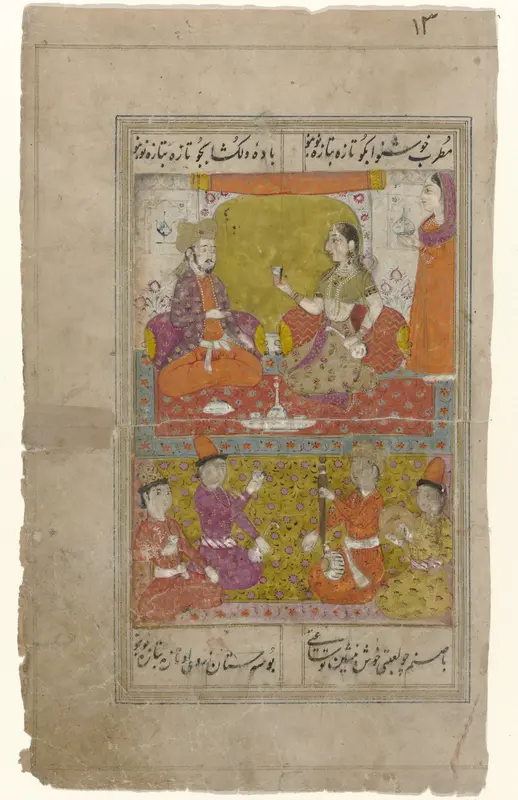 ۱۳
مطرب خوشنوا بگو تازه بتازه نوبنو
بادهٔ دلکشا بجو تازه بتازه نوبنو
با صنم چو لعبتی خوش بنشین تو ساعتی
بوسه ستان ز روی او تازه بتازه نوبنو